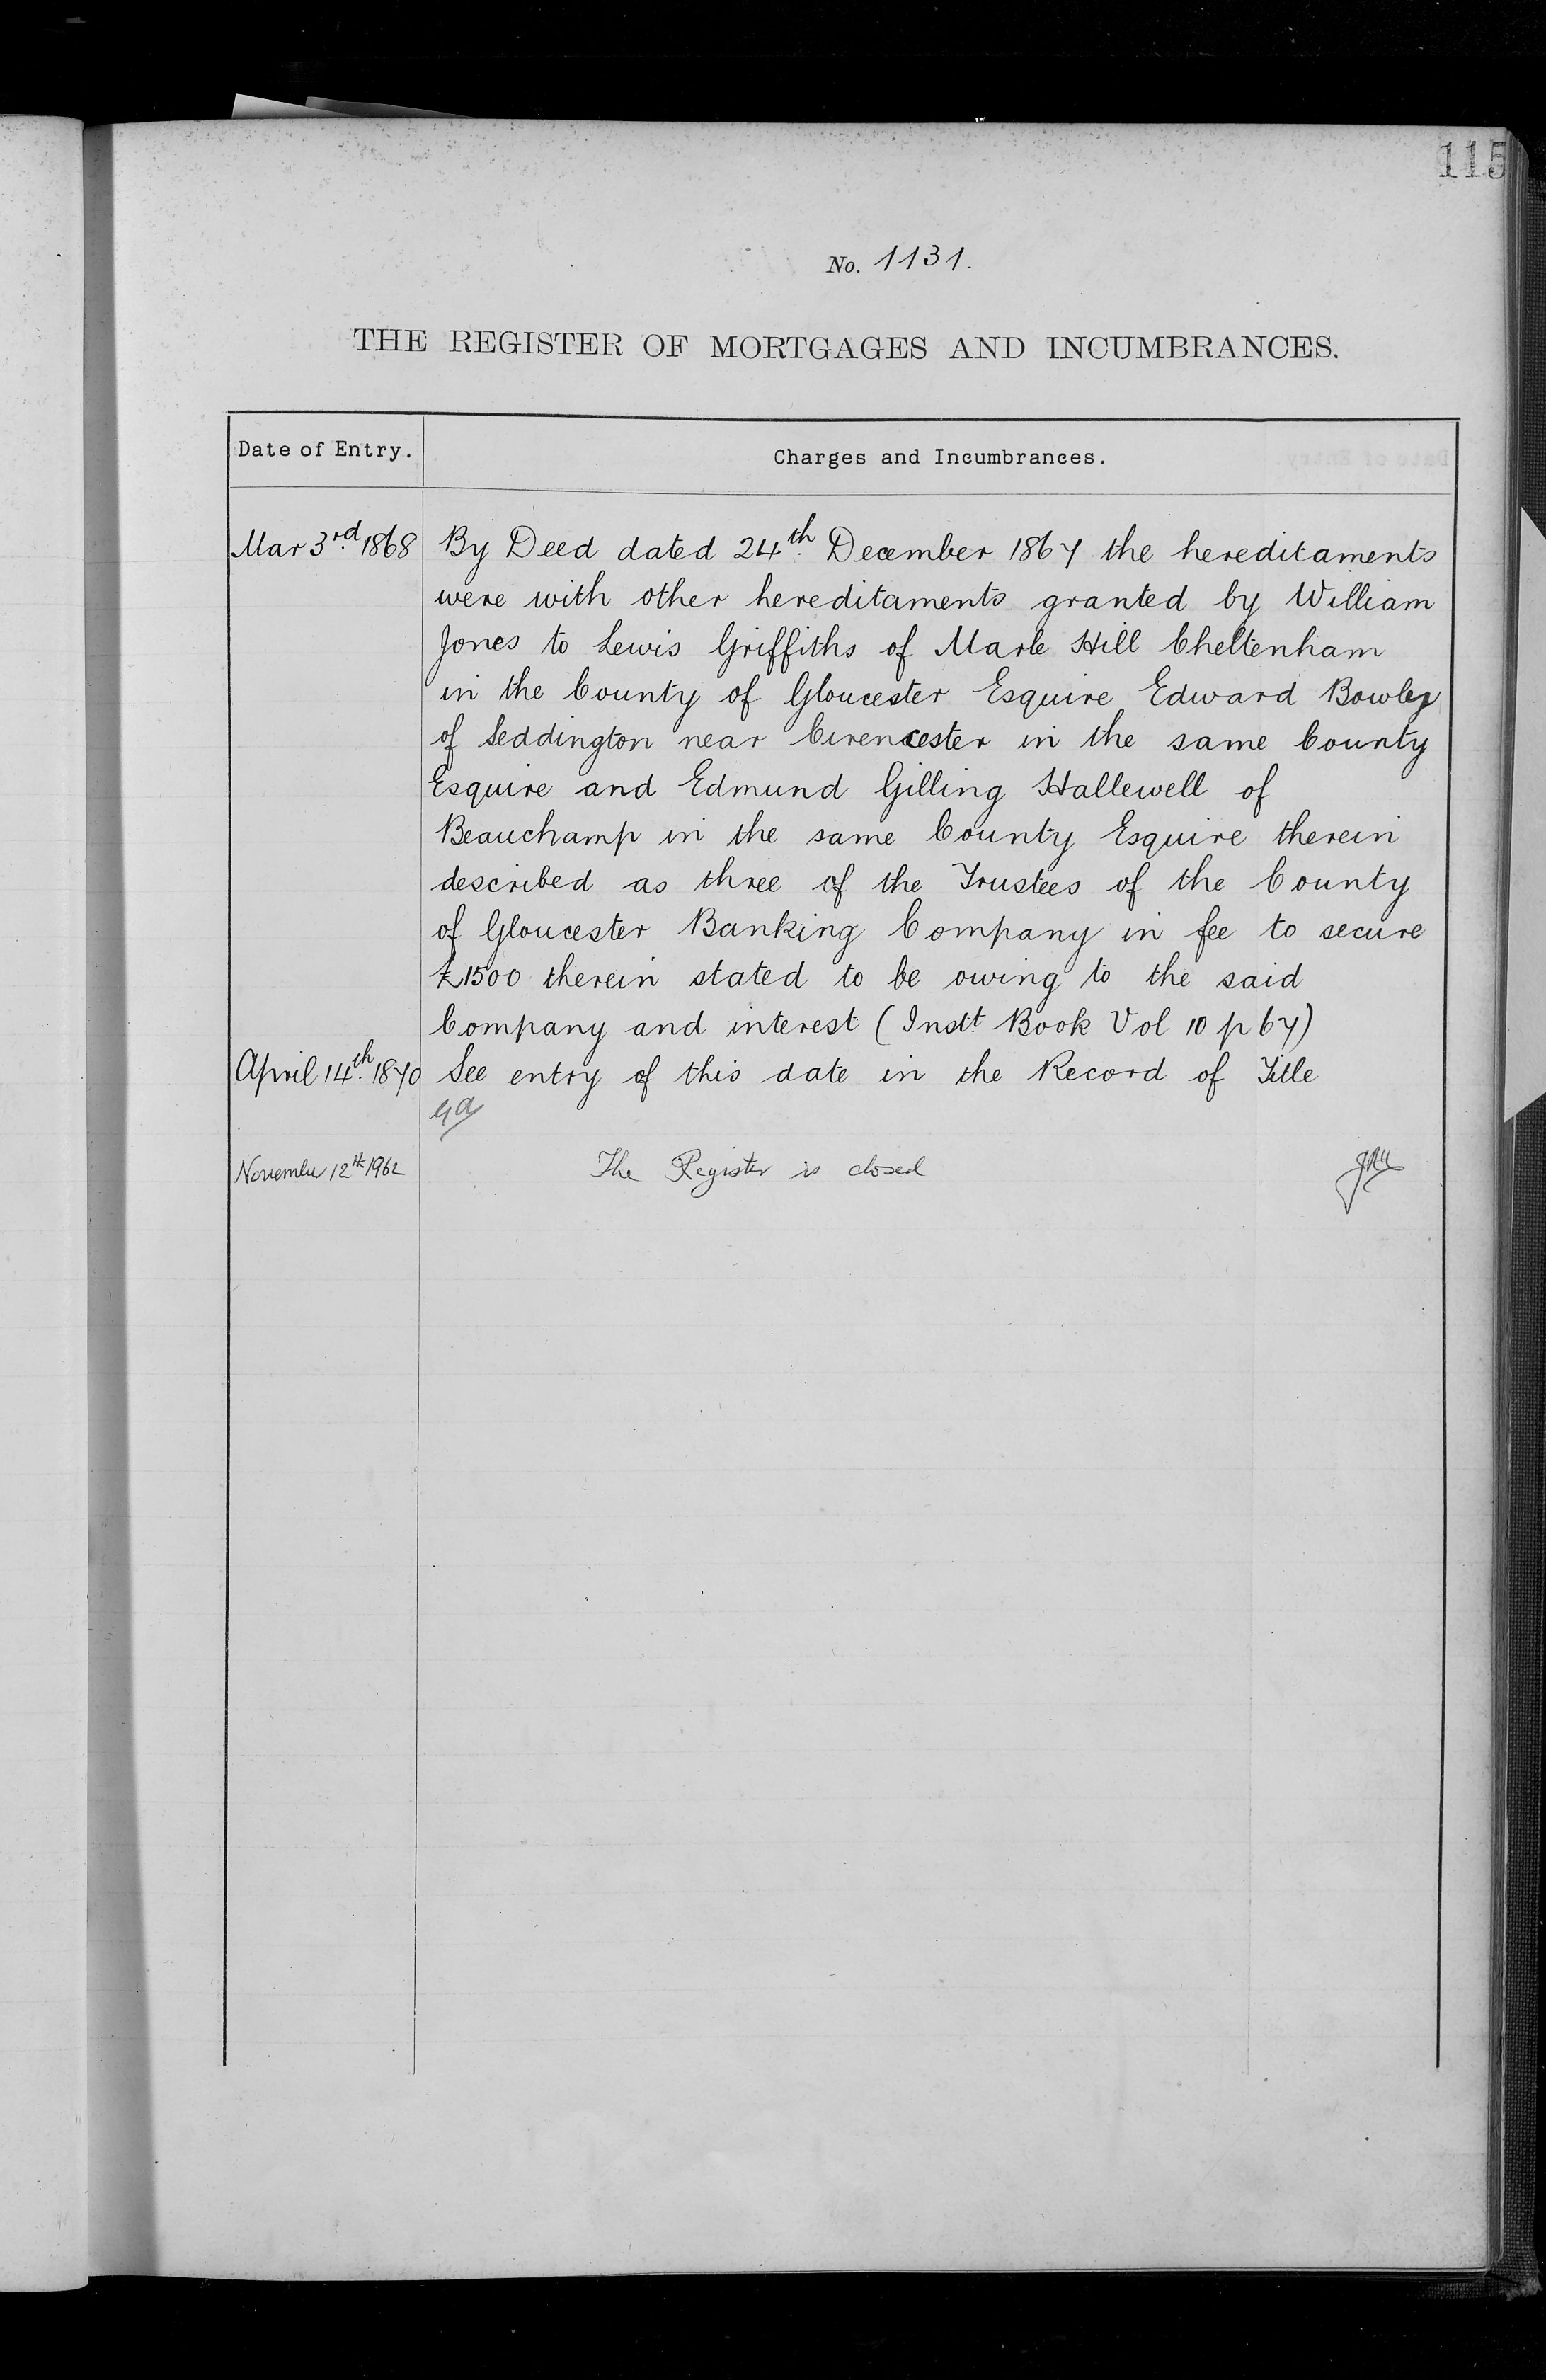 115
No. 1131.
THE REGISTER OF MORTGAGES AND INCUMBRANCES.
Date of Entry. Charges and Incumbrances.
Mar 3rd. 1868 By Deed dated 24th. December 1867 the hereditaments
were with other hereditaments granted by William
Jones to Lewis Griffiths of Marle Hill Cheltenham
in the County of Gloucester Esquire Edward Bowley
of Seddington near Cirencester in the same County
Esquire and Edmund Gilling Hallewell of
Beauchamp in the same County Esquire therein
described as three of the Trustees of the County
of Gloucester Banking Company in fee to secure
£1500 therein stated to be owing to the said
Company and interest (Instt. Book Vol 10 p 67)
April 14th. 1870 See entry of this date in the Record of Title
November 12th 1962 The Register is closed